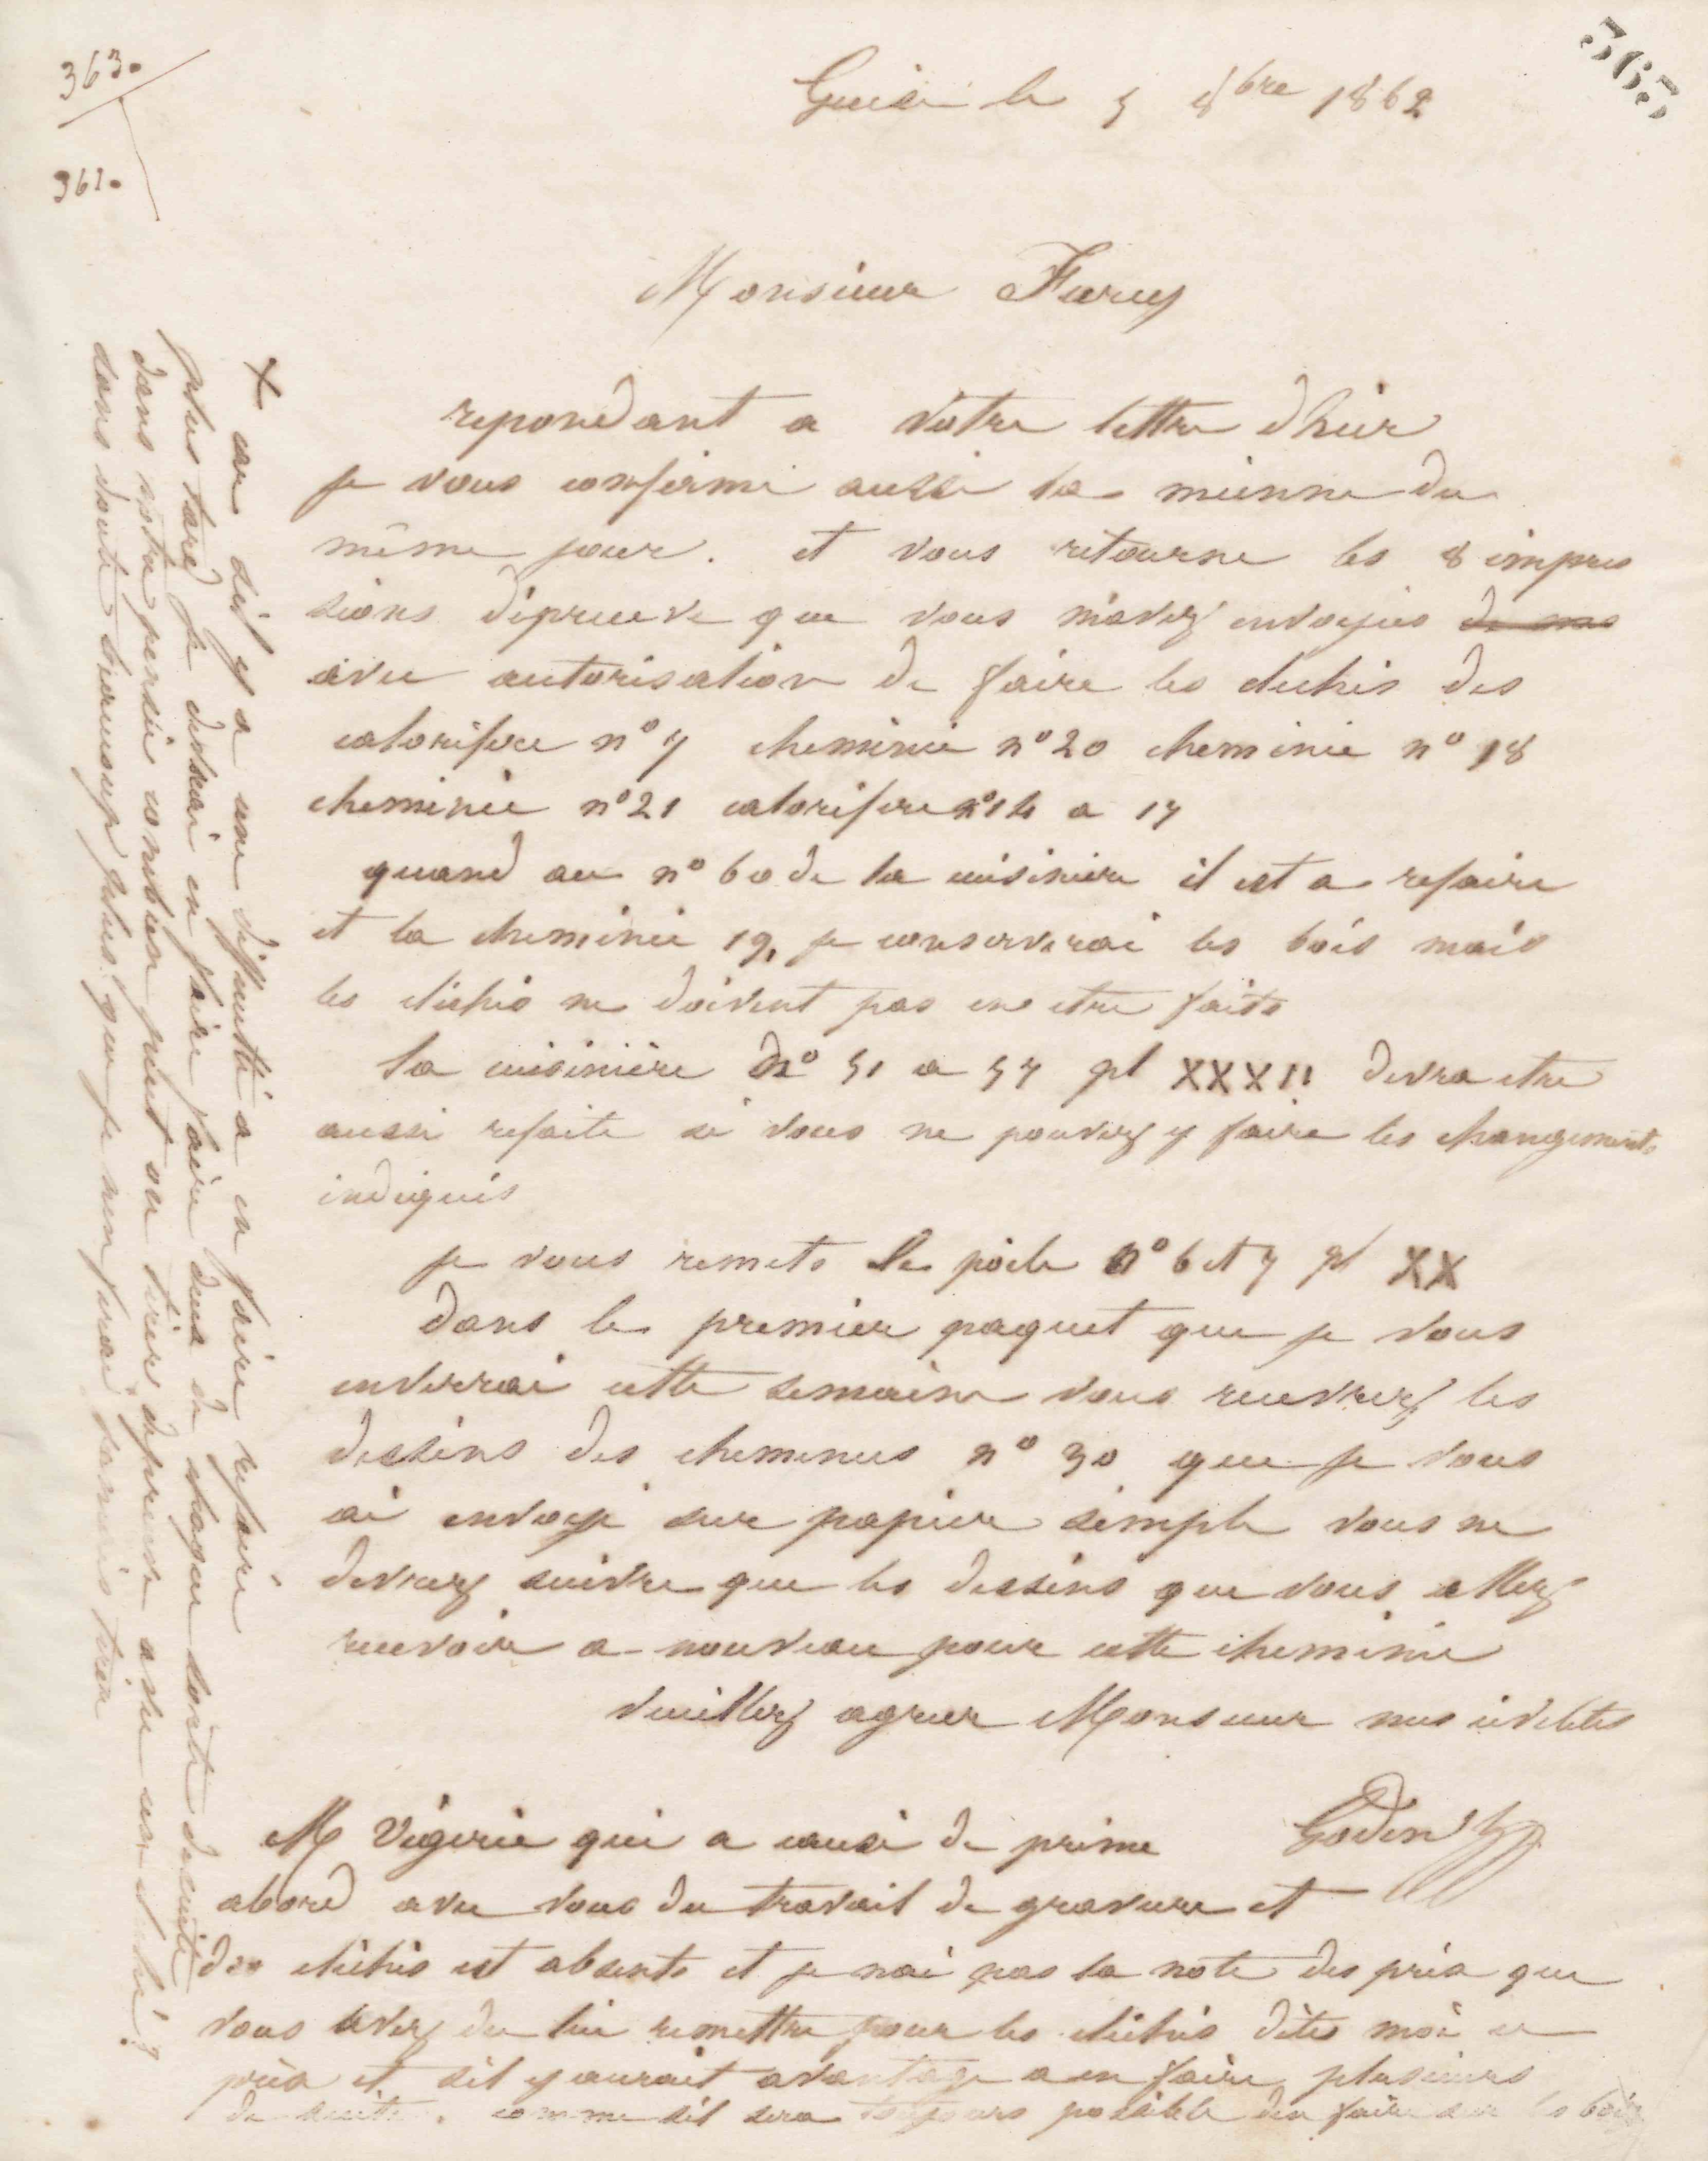 363.
361.
365
Guise le 5 8bre 1862
Monsieur Farcy
repondant a votre lettre d'hier
je vous confirme aussi la mienne du
même jour. et vous retourne les 8 impres
sions d'épreuve que vous m'avez envoyées de mes
avec autorisation de faire les clichés des
calorifere n° 7 cheminée n° 20 cheminée n° 18
cheminée n° 21 calorifere n° 14 a 17
quand au n° 60 de la cuisinière il est a refaire
et la cheminée 19, je conserverai les bois mais
les clichés ne doivent pas en etre faits
la cuisinière n° 51 a 57 pl XXXII devra etre
aussi refaite si vous ne pouvez y faire les changements
indiqués
je vous remets le poële n° 6 et 7 pl XX
dans le premier paquet que je vous
enverrai cette semaine vous recevrez les
dessins des cheminées n° 30 que je vous
ai envoyé sur papier simple vous ne
devrez suivre que les dessins que vous allez
recevoir a nouveau pour cette cheminée
Veuillez agreer Monsieur mes civilités
Godin
M Vigerie qui a causé de prime
abord avec vous du travail de gravure et
des clichés est absent et je nai pas la note des prix que
vous avez du lui remettre pour les clichés dites moi ce
prix et sil y aurait avantage a en faire plusieurs
de suite. comme sil sera toujours possible den faire sur les bois
+ car sil y a une difficulté a en faire refaire
plus tard je desirerai en faire faire deux de chaque sorte de suite
dans votre pensée combien peut on tirer depreuve avec un cliché?
sans doute beaucoup plus que je nen ferai jamais tirer